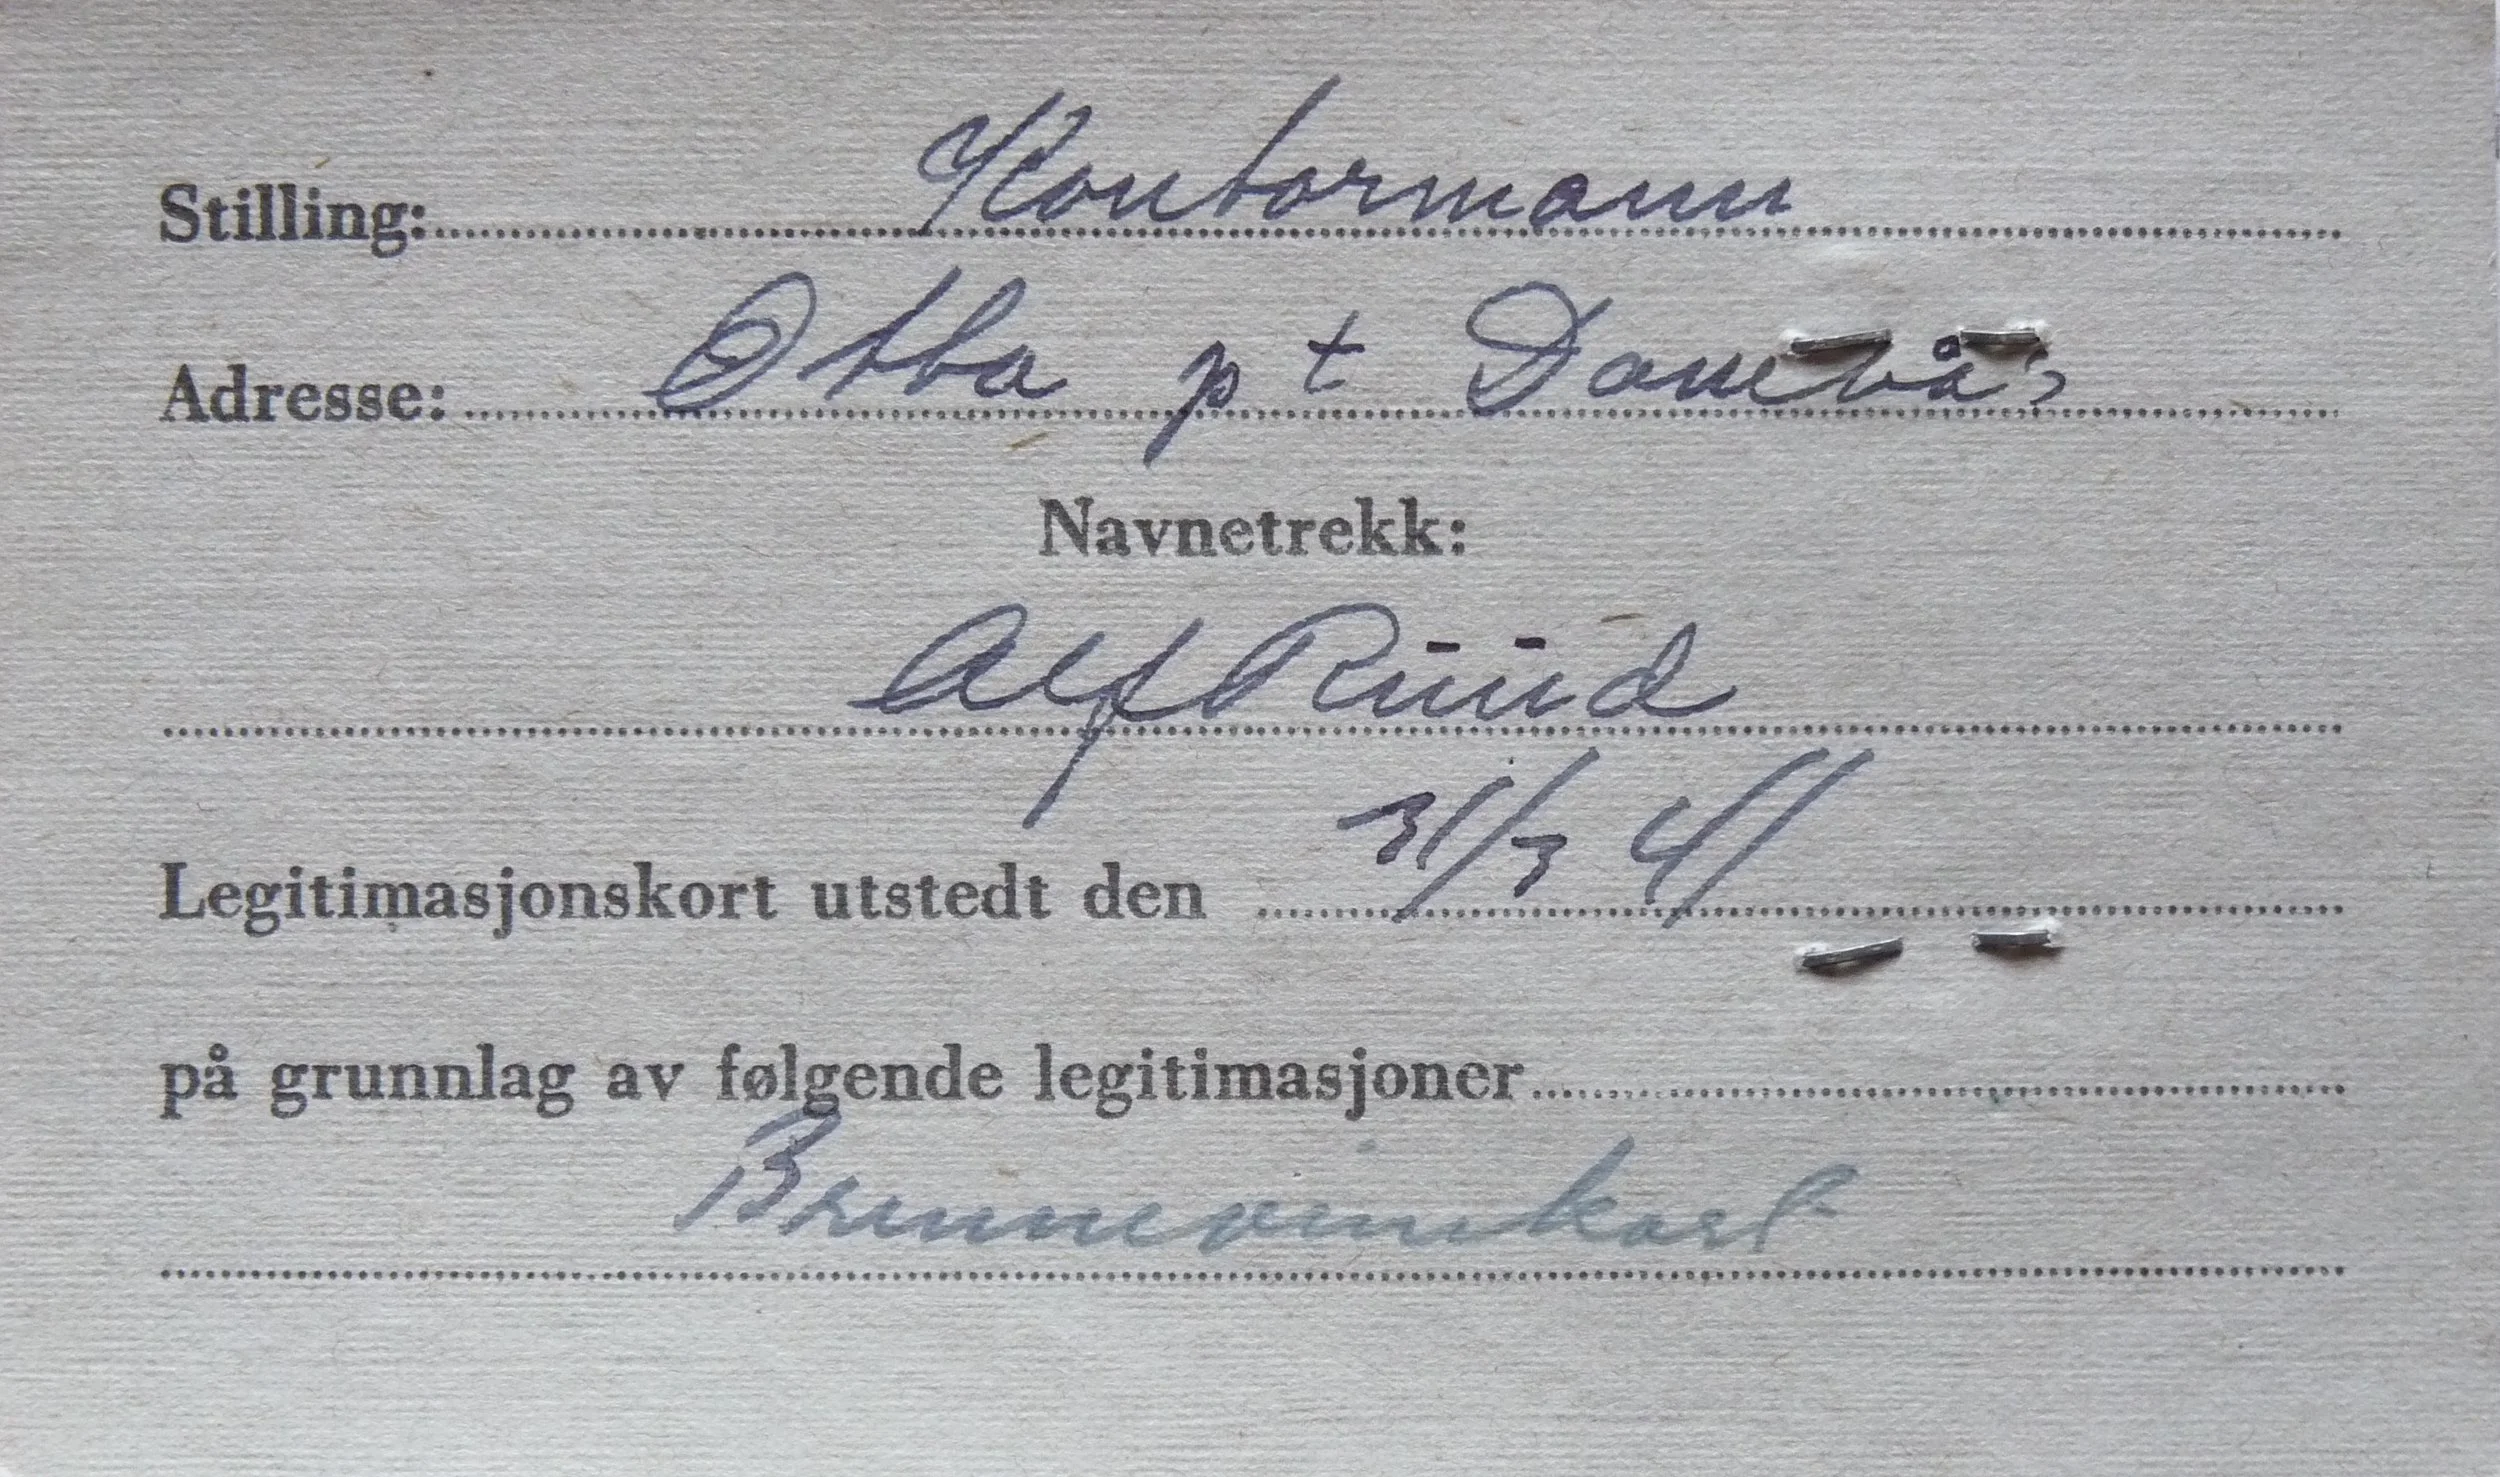 Stilling: Kontormann
Adresse: Otta p t Dombås
Navnetrekk:
Alf Ruud
Legitimasjonskort utstedt den 31/3 41
på grunnlag av følgende legitimasjoner
Brennevinskort